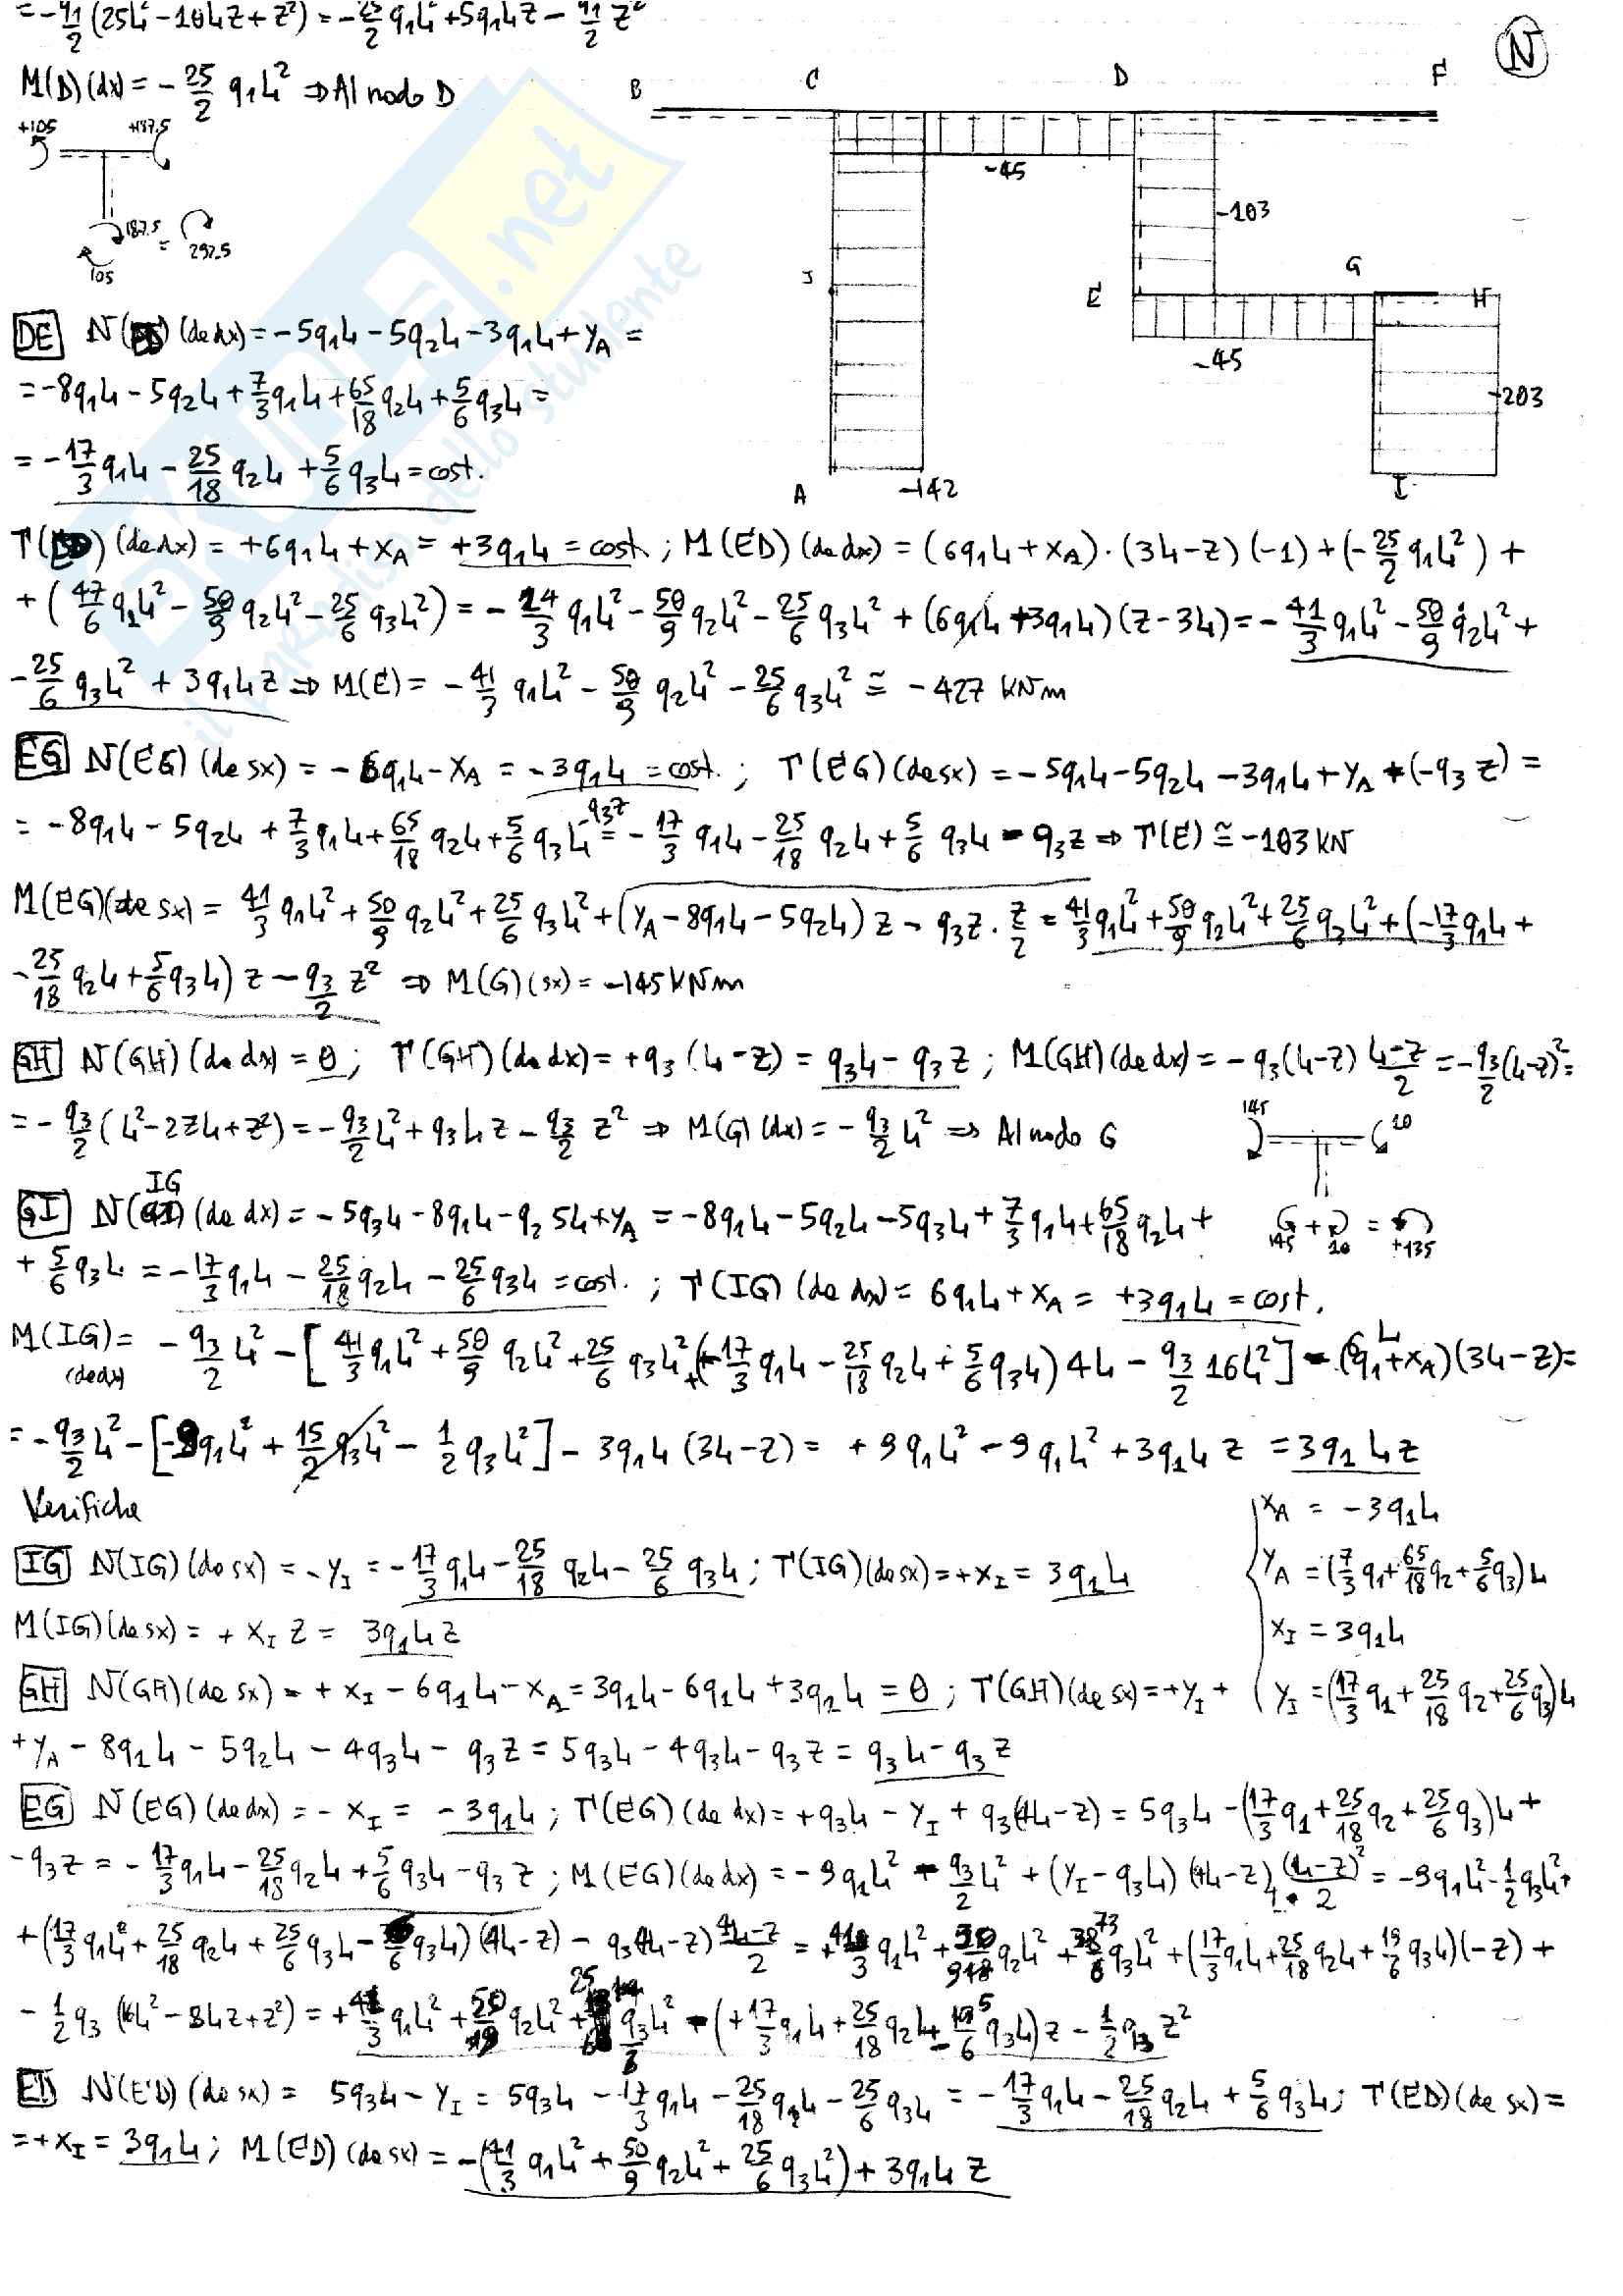 = -q₁/2 (25L² - 10Lz + z²) = -25/2 q₁L² + 5q₁Lz - q₁/2 z²
N
M(D)(dx) = -25/2 q₁L² ⇒ Al nodo D
+105 +187.5
187.5 = 292.5
105
B C D F
-45
-103
J E G H
-45
-203
A -142 I
DE N( ) (da dx) = -5q₁L - 5q₂L - 3q₁L + yA =
= -8q₁L - 5q₂L + 7/3 q₁L + 65/18 q₂L + 5/6 q₃L =
= -17/3 q₁L - 25/18 q₂L + 5/6 q₃L = cost.
T( ) (da dx) = +6q₁L + xA = +3q₁L = cost.; M(ED) (da dx) = (6q₁L + xA)·(3L-z)(-1) + (-25/2 q₁L²) +
+ (47/6 q₁L² - 50/9 q₂L² - 25/6 q₃L²) = - 14/3 q₁L² - 50/9 q₂L² - 25/6 q₃L² + (6q₁L + 3q₁L)(z-3L) = -41/3 q₁L² - 50/9 q₂L² +
-25/6 q₃L² + 3q₁Lz ⇒ M(E) = -41/3 q₁L² - 50/9 q₂L² - 25/6 q₃L² ≅ -427 KNm
EG N(EG) (da sx) = -6q₁L - xA = -3q₁L = cost.; T(EG)(da sx) = -5q₁L - 5q₂L - 3q₁L + yA + (-q₃z) =
= -8q₁L - 5q₂L + 7/3 q₁L + 65/18 q₂L + 5/6 q₃L - q₃z = -17/3 q₁L - 25/18 q₂L + 5/6 q₃L - q₃z ⇒ T(E) ≅ -103 KN
M(EG)(da sx) = 41/3 q₁L² + 50/9 q₂L² + 25/6 q₃L² + (yA - 8q₁L - 5q₂L) z - q₃z · z/2 = 41/3 q₁L² + 50/9 q₂L² + 25/6 q₃L² + (-17/3 q₁L +
-25/18 q₂L + 5/6 q₃L) z - q₃/2 z² ⇒ M(G)(sx) = -145 KNm
GH N(GH) (da dx) = 0; T(GH)(da dx) = +q₃(L-z) = q₃L - q₃z; M(GH)(da dx) = -q₃(L-z) L-z/2 = -q₃/2 (L-z)² =
= -q₃/2 (L² - 2zL + z²) = -q₃/2 L² + q₃Lz - q₃/2 z² ⇒ M(G)(dx) = -q₃/2 L² ⇒ Al nodo G
145 10
GI N(IG) (da dx) = -5q₃L - 8q₁L - q₂5L + yA = -8q₁L - 5q₂L - 5q₃L + 7/3 q₁L + 65/18 q₂L +
145 + 10 = +135
+ 5/6 q₃L = -17/3 q₁L - 25/18 q₂L - 25/6 q₃L = cost.; T(IG) (da dx) = 6q₁L + xA = +3q₁L = cost.
M(IG) (da dx) = -q₃/2 L² - [41/3 q₁L² + 50/9 q₂L² + 25/6 q₃L² + (-17/3 q₁L - 25/18 q₂L + 5/6 q₃L) 4L - q₃/2 16L²] - (6q₁L + xA)(3L-z) =
= -q₃/2 L² - [-9q₁L² + 15/2 q₃L² - 1/2 q₃L²] - 3q₁L (3L-z) = +9q₁L² - 9q₁L² + 3q₁Lz = 3q₁Lz
Verifiche
xA = -3q₁L
IG N(IG)(da sx) = -yI = -17/3 q₁L - 25/18 q₂L - 25/6 q₃L; T(IG)(da sx) = +xI = 3q₁L
yA = (7/3 q₁ + 65/18 q₂ + 5/6 q₃)L
M(IG)(da sx) = + xI z = 3q₁Lz
xI = 3q₁L
GH N(GH)(da sx) = + xI - 6q₁L - xA = 3q₁L - 6q₁L + 3q₁L = 0; T(GH)(da sx) = +yI +
yI = (17/3 q₁ + 25/18 q₂ + 25/6 q₃)L
+yA - 8q₁L - 5q₂L - 4q₃L - q₃z = 5q₃L - 4q₃L - q₃z = q₃L - q₃z
EG N(EG) (da dx) = -xI = -3q₁L; T(EG)(da dx) = +q₃L - yI + q₃(4L-z) = 5q₃L - (17/3 q₁ + 25/18 q₂ + 25/6 q₃)L +
-q₃z = -17/3 q₁L - 25/18 q₂L + 5/6 q₃L - q₃z; M(EG)(da dx) = -9q₁L² - q₃/2 L² + (yI - q₃L)(4L-z) = -9q₁L² - 1/2 q₃L² +
+ (17/3 q₁L + 25/18 q₂L + 25/6 q₃L - q₃L)(4L-z) - q₃(4L-z) 4L-z/2 = + q₁L² + q₂L² + q₃L² + (17/3 q₁L + 25/18 q₂L + 19/6 q₃L)(-z) +
- 1/2 q₃ (16L² - 8Lz + z²) = +41/3 q₁L² + 50/9 q₂L² + q₃L² - (+17/3 q₁L + 25/18 q₂L - 5/6 q₃L) z - 1/2 q₃z²
ED N(ED) (da sx) = 5q₃L - yI = 5q₃L - 17/3 q₁L - 25/18 q₂L - 25/6 q₃L = -17/3 q₁L - 25/18 q₂L + 5/6 q₃L; T(ED)(da sx) =
= +xI = 3q₁L; M(ED) (da sx) = -(41/3 q₁L² + 50/9 q₂L² + 25/6 q₃L²) + 3q₁Lz
SKUOLA.net
il paradiso dello studente